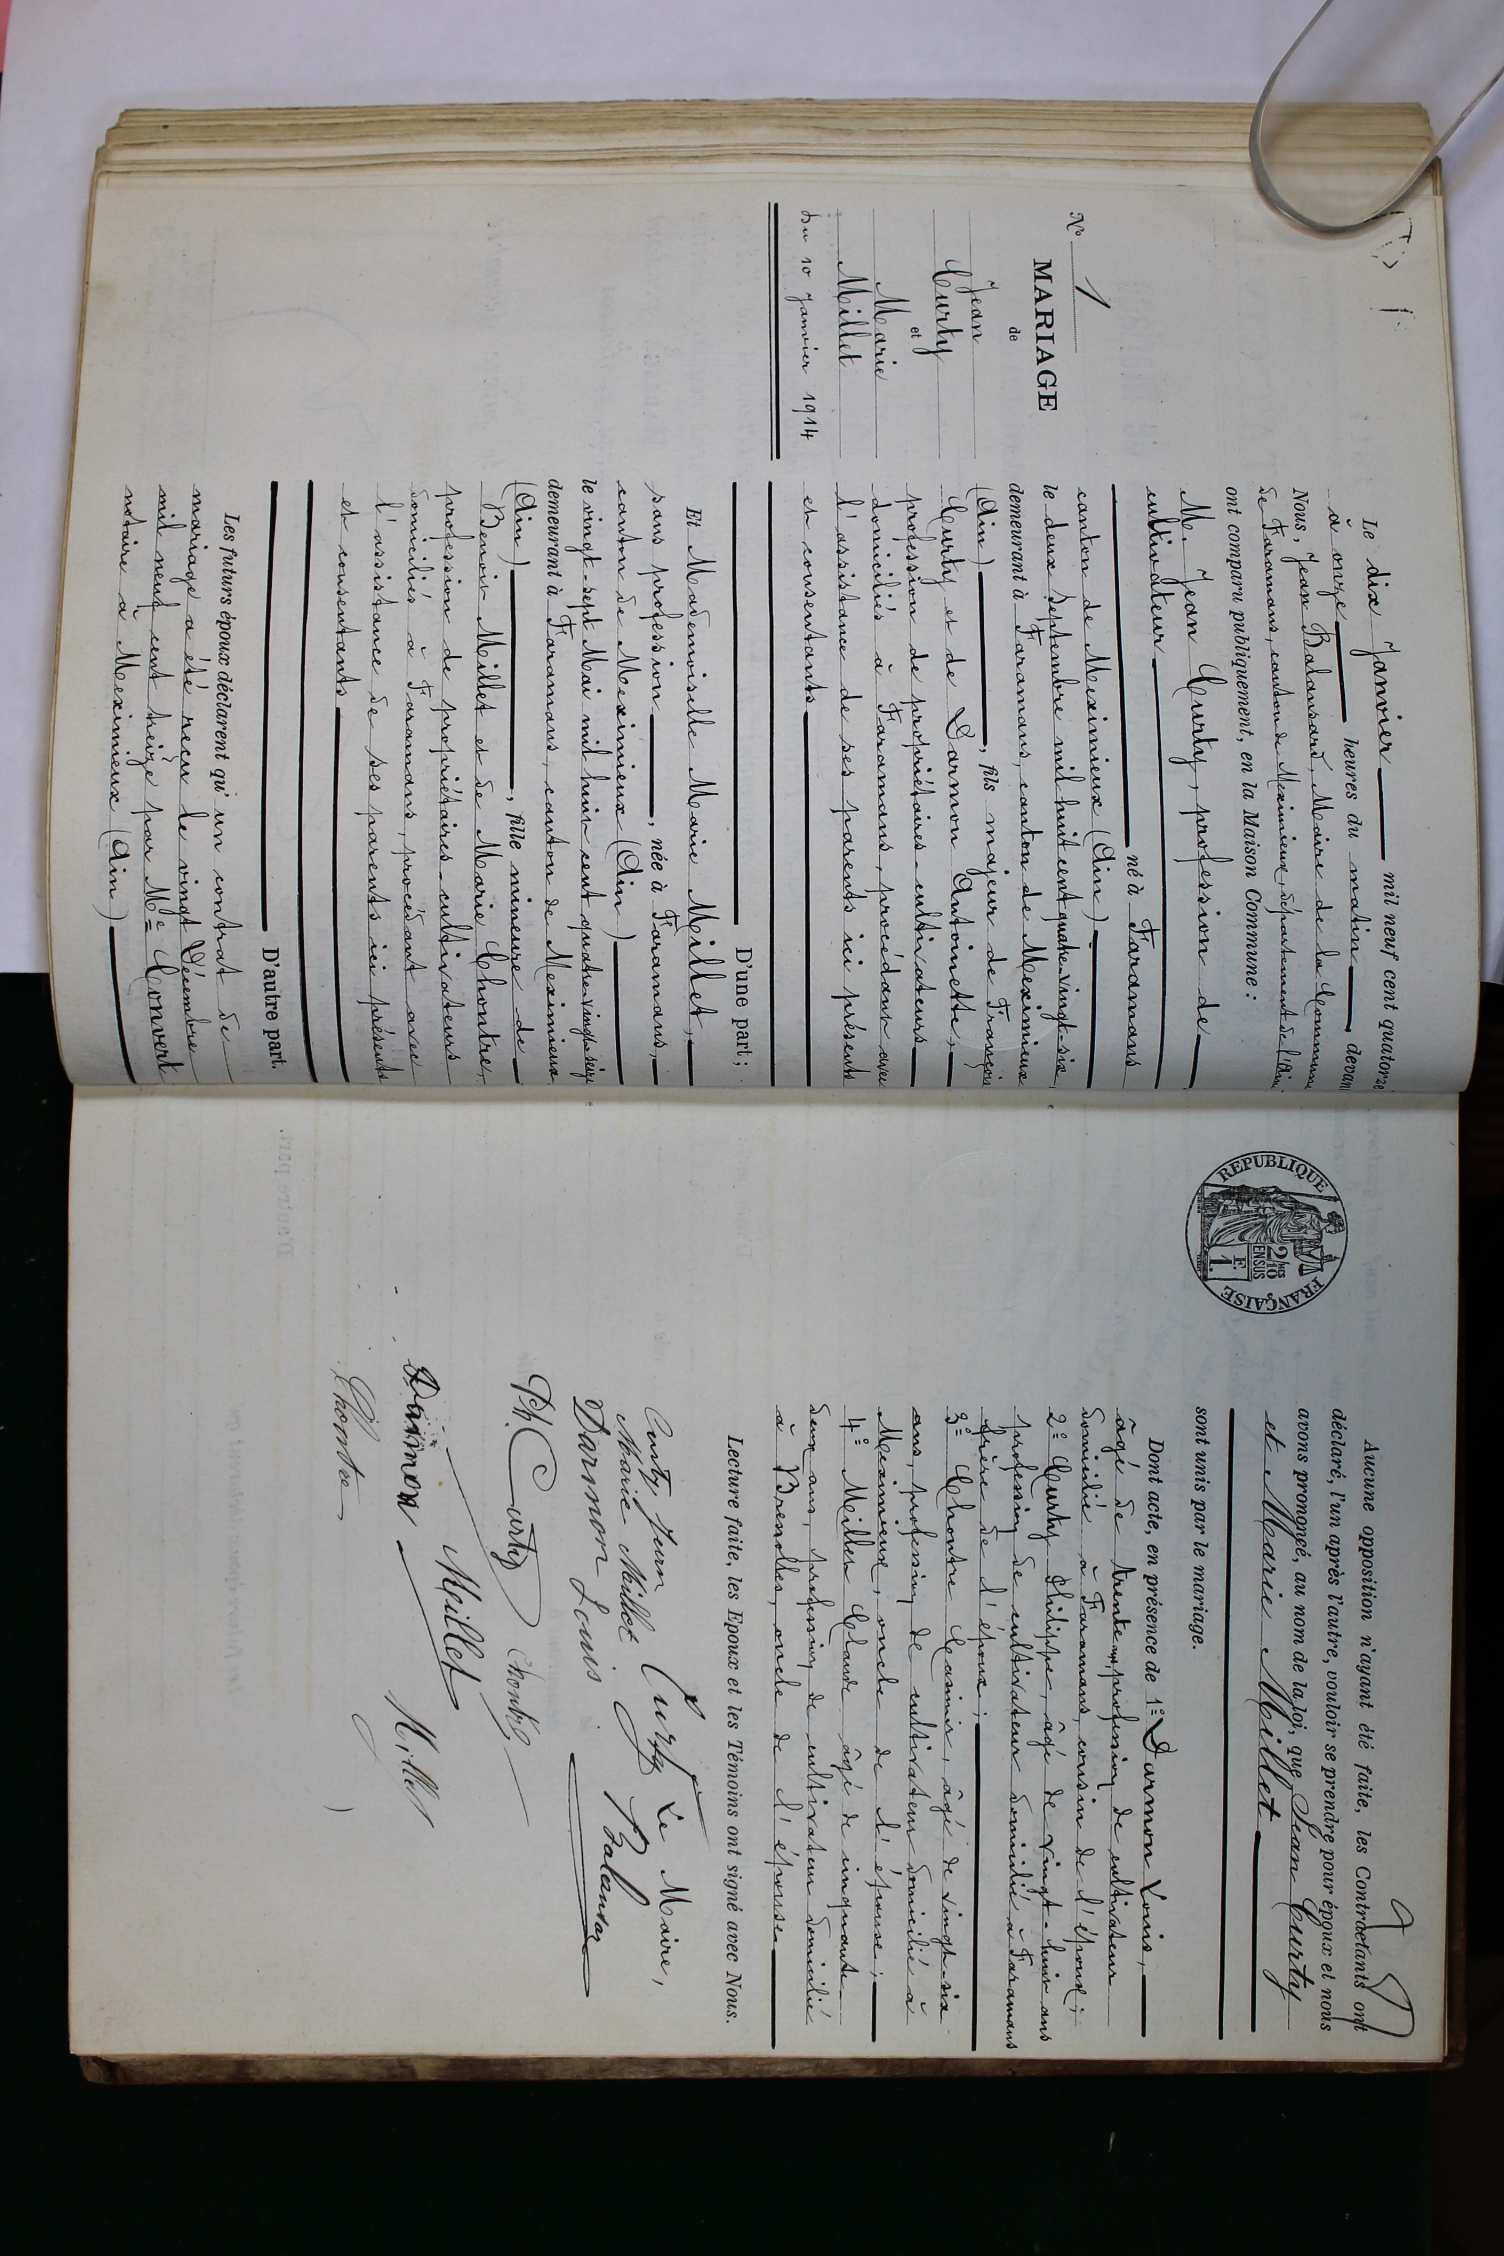 N° 1
MARIAGE
de
Jean
Curty
et
Marie
Millet
Du 10 Janvier 1914
Le dix Janvier mil neuf cent quatorze
à onze heures du matin, devant
Nous, Jean Balansard, Maire de la Commune
de Faramans, canton de Meximieux, département de l'Ain
ont comparu publiquement, en la Maison Commune :
M. Jean Curty, profession de
cultivateur
né à Faramans
canton de Meximieux (Ain)
le deux Septembre mil huit cent quatre-vingt-six,
demeurant à Faramans, canton de Meximieux
(Ain), fils majeur de François
Curty et de Darmon Antoinette,
profession de propriétaires-cultivateurs
domiciliés à Faramans, procédant avec
l'assistance de ses parents ici présents
et consentants
D'une part ;
Et Mademoiselle Marie Millet,
sans profession, née à Faramans,
canton de Meximieux (Ain)
le vingt-sept Mai mil huit cent quatre-vingt-seize
demeurant à Faramans, canton de Meximieux
(Ain), fille mineure de
Benoit Millet et de Marie Chontre,
profession de propriétaires-cultivateurs
domiciliés à Faramans, procédant avec
l'assistance de ses parents ici présents
et consentants
D'autre part.
Les futurs époux déclarent qu'un contrat de
mariage a été reçu le vingt Décembre
mil neuf cent treize par Me Convert
notaire à Meximieux (Ain)
REPUBLIQUE FRANÇAISE
2/10mes
EN SUS
1 F.
Aucune opposition n'ayant été faite, les Contractants ont
déclaré, l'un après l'autre, vouloir se prendre pour époux et nous
avons prononcé, au nom de la loi, que Jean Curty
et Marie Millet
sont unis par le mariage.
Dont acte, en présence de 1° Darmon Louis,
âgé de trente ans, profession de cultivateur
domicilié à Faramans, cousin de l'époux ;
2° Curty Philippe, âgé de vingt-huit ans
profession de cultivateur domicilié à Faramans
frère de l'époux ;
3° Chontre Casimir, âgé de vingt-six
ans, profession de cultivateur domicilié à
Meximieux, oncle de l'épouse ;
4° Millet Claude âgé de cinquante-
deux ans, profession de cultivateur domicilié
à Bressolles, oncle de l'épouse
Lecture faite, les Epoux et les Témoins ont signé avec Nous.
Curty Jean Curty Le Maire,
Marie Millet
Darmon Louis Balansard
Ph. Curty Chontre
Millet
Darmon Millet
Chontre